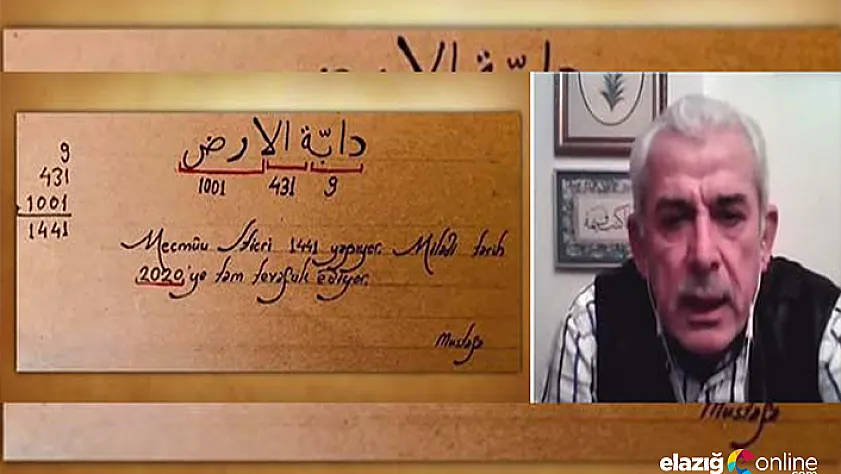 9
431
1001
1441
دابّة الارض
1001 431 9
Mecmûu Hicri 1441 yapıyor. Milâdi tarih
2020'ye tam tevafuk ediyor.
Mustafa
Mustafa
elazığ online
.com